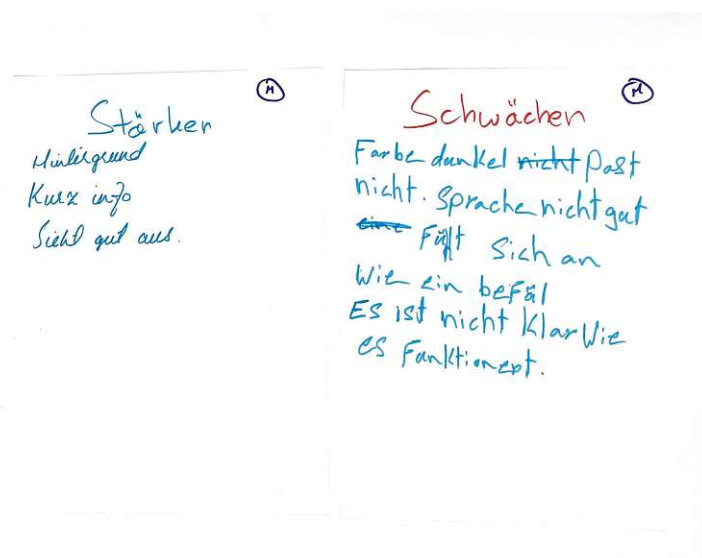 M
Stärken
Hintergrund
Kurz info
Sieht gut aus.
M
Schwächen
Farbe dunkel nicht past
nicht. Sprache nicht gut
eine Fühlt sich an
Wie ein befäl
Es ist nicht Klar Wie
es Fanktionert.